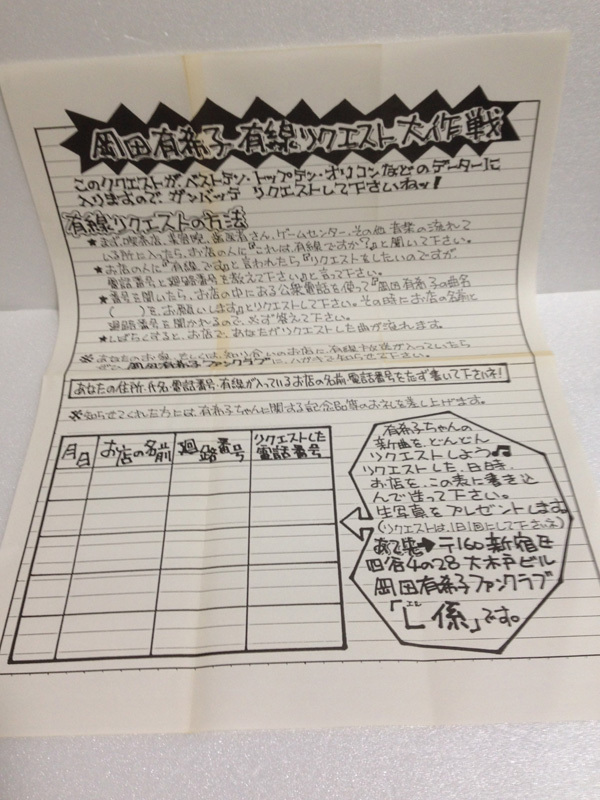 岡田有希子 有線リクエスト大作戦
このリクエストが、ベストテン・トップテン・オリコンなどのデーターに
入りますので、ガンバッテ リクエストして下さいねッ!
有線リクエストの方法
★まず、喫茶店、美容院、歯医者さん、ゲームセンター、その他 音楽の流れて
いる所に入ったら、お店の人に『これは、有線ですか?』と聞いて下さい。
★お店の人に『有線です』と言われたら『リクエストをしたいのですが、
電話番号と廻路番号を教えて下さい』と言って下さい。
★番号を聞いたら、お店の中にある公衆電話を使って『岡田有希子の曲名
( )を、お願いします』とリクエストして下さい。その時にお店の名前と
廻路番号を聞かれるので、必ず答えて下さい。
★しばらくすると、お店で、あなたがリクエストした曲が流れます。
※あなたのお家、もしくは、知り合いのお店に、有線放送が入っていたら
岡田有希子ファンクラブに、ハガキで知らせて下さい。
あなたの住所・氏名・電話番号・有線が入っているお店の名前・電話番号を忘ず書いて下さいネ!
※知らせてくれた方には、有希子ちゃんに関する記念品等のお礼を差し上げます。
月日
お店の名前
廻路番号
リクエストした
電話番号
有希子ちゃんの
新曲を、どんどん
リクエストしよう♫
リクエストした、日時、
お店を、この表に書き込
んで送って下さい。
生写真をプレゼントします
(リクエストは、1日1回にして下さいネ)
あて先➡〒160 新宿区
四谷4の28 大木戸ビル
岡田有希子ファンクラブ
「L係」です。
エル